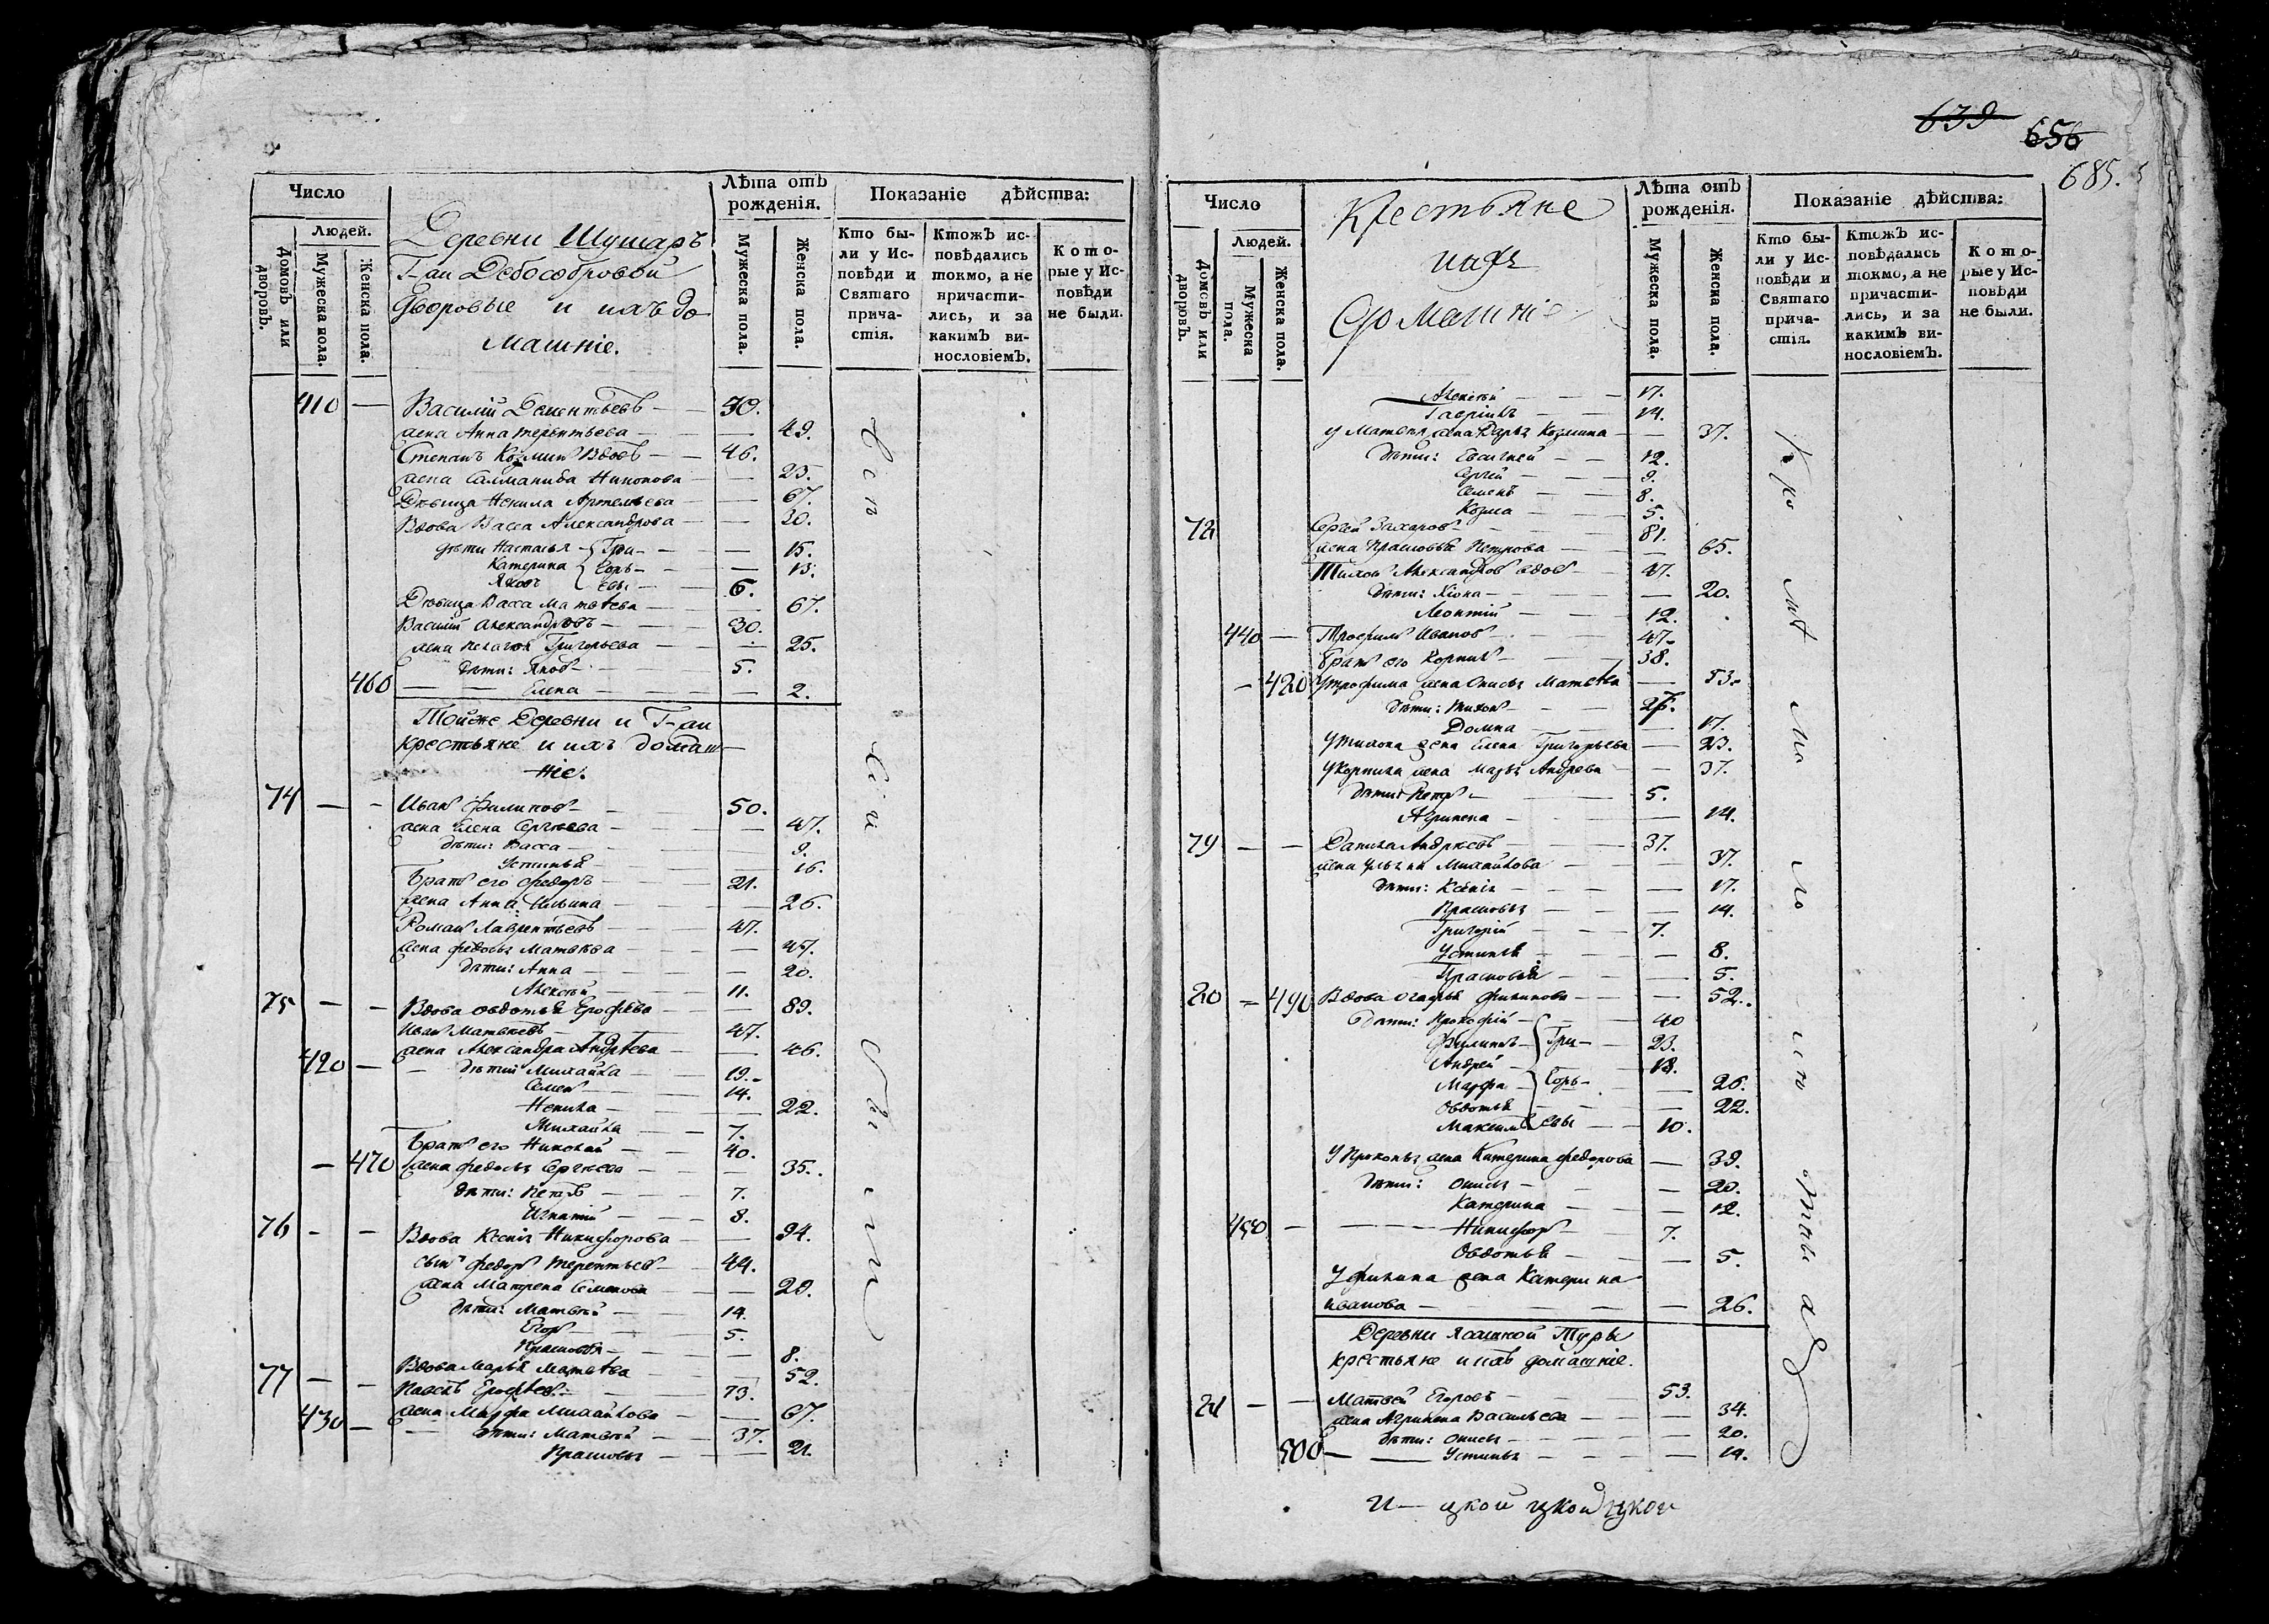 639
656
685.
Число
Лѣта отъ рожденія.
Показаніе дѣйства:
Людей.
Домовъ или дворовъ.
Мужеска пола.
Женска пола.
Деревни Шушаръ
Г-жи
Дворовые и ихъ до
машніе.
Мужеска пола.
Женска пола.
Кто бы-
ли у Ис-
повѣди и
Святаго
прича-
стія.
Ктожъ ис-
повѣдались
токмо, а не
причасти-
лись, и за
какимъ ви-
нословіемъ.
Кото-
рые у Ис-
повѣди
не были.
410 — Василій Дементьевъ — 50.
жена Анна Терентьева — 49.
Степанъ Козмин вдовъ — 46.
жена Никонова — 25.
Дѣвица Ненила Артемьева — 67.
Вдова Васса Александрова — 30.
дѣти Настасья Гри — 15.
Катерина горь — 13.
Яковъ евы — 6.
Дѣвица Васса Матвѣева — 67.
Василій Александровъ — 30.
жена Пелагея Григорьева — 25.
дѣти: Яков — 5.
460 — Елена — 2.
Тойже Деревни и Г-жи
крестьяне и ихъ домаш
ніе.
74 — Иван Филипов — 50.
жена Елена Сергѣева — 47.
дѣти: Васса — 9.
Устинья — 16.
Брат его Федоръ — 21.
жена Анна Ильина — 26.
Роман Лаврентьевъ — 47.
жена Федосья Матвѣева — 47.
дѣти: Анна — 20.
Алексѣй — 11.
75 — Вдова Овдотья Ерофѣева — 89.
Иван Матвѣевъ — 47.
жена Александра Андрѣева — 46.
420 — дѣти Михайла — 19.
Семен — 14.
Ненила — 22.
Михайла — 7.
Брат его Николай — 40.
470 жена Федосья Сергѣева — 35.
дѣти: Петръ — 7.
Игнатій — 8.
76 — Вдова Ксенія Никифорова — 94.
сын Федор Терентьев — 44.
жена Матрена Семенова — 29.
дѣти: Матвѣй — 14.
Егор — 5.
Прасковья — 8.
77 — Вдова Марья Матвѣева — 52.
Павелъ Ерофѣев — 73.
430 — жена Марфа Михайлова — 67.
дѣти: Матвѣй — 37.
Прасковья — 21.
Число
Лѣта отъ рожденія.
Показаніе дѣйства:
Людей.
Домовъ или дворовъ.
Мужеска пола.
Женска пола.
Крестьяне
ихъ
домашніе
Мужеска пола.
Женска пола.
Кто бы-
ли у Ис-
повѣди и
Святаго
прича-
стія.
Ктожъ ис-
повѣдались
токмо, а не
причасти-
лись, и за
какимъ ви-
нословіемъ.
Кото-
рые у Ис-
повѣди
не были.
Алексѣй — 17.
Гаврилъ — 14.
у Матвѣя жена Дарья Козмина — 37.
дѣти: Евдигней — 12.
Сергѣй — 9.
Семенъ — 8.
Козма — 5.
78 Сергѣй Захаров — 81.
жена Прасковья Петрова — 65.
Тихон Александров вдов — 47.
дѣти: Хіона — 20.
Леонтій — 12.
440 — Трофим Иванов — 47.
Брат его Корнил — 38.
— 480 У Трофима жена Онисья Матвѣева — 53.
дѣти: Тихон — 27.
Домна — 17.
У Тихона жена Елена Григорьева — 23.
У Корнила жена Марья Андрѣева — 37.
дѣти: Петр — 5.
Агрипена — 14.
79 — Данила Андрѣевъ — 37.
жена Ульяна Михайлова — 37.
дѣти: Ксенія — 17.
Прасковья — 14.
Григорій — 7.
Устинья — 8.
Прасковья — 5.
80 — 490 Вдова Филипова — 52.
дѣти: Прокофій — 40
Филипъ Гри — 23.
Андрей — 18.
Марфа горь — 26.
Овдотья — 22.
Максим евы — 10.
У Прокопья жена Катерина Федорова — 39.
дѣти: Онисья — 20.
Катерина — 12.
450 — Никифор — 7.
Овдотья — 5.
У Филипа жена Катерина
Иванова — 26.
Деревни Ясашной Туры
крестьяне и ихъ домашніе.
81 — Матвей Егоровъ — 53.
жена Агрипена Васильева — 34.
дѣти: Онисья — 20.
500 — Устинья — 14.